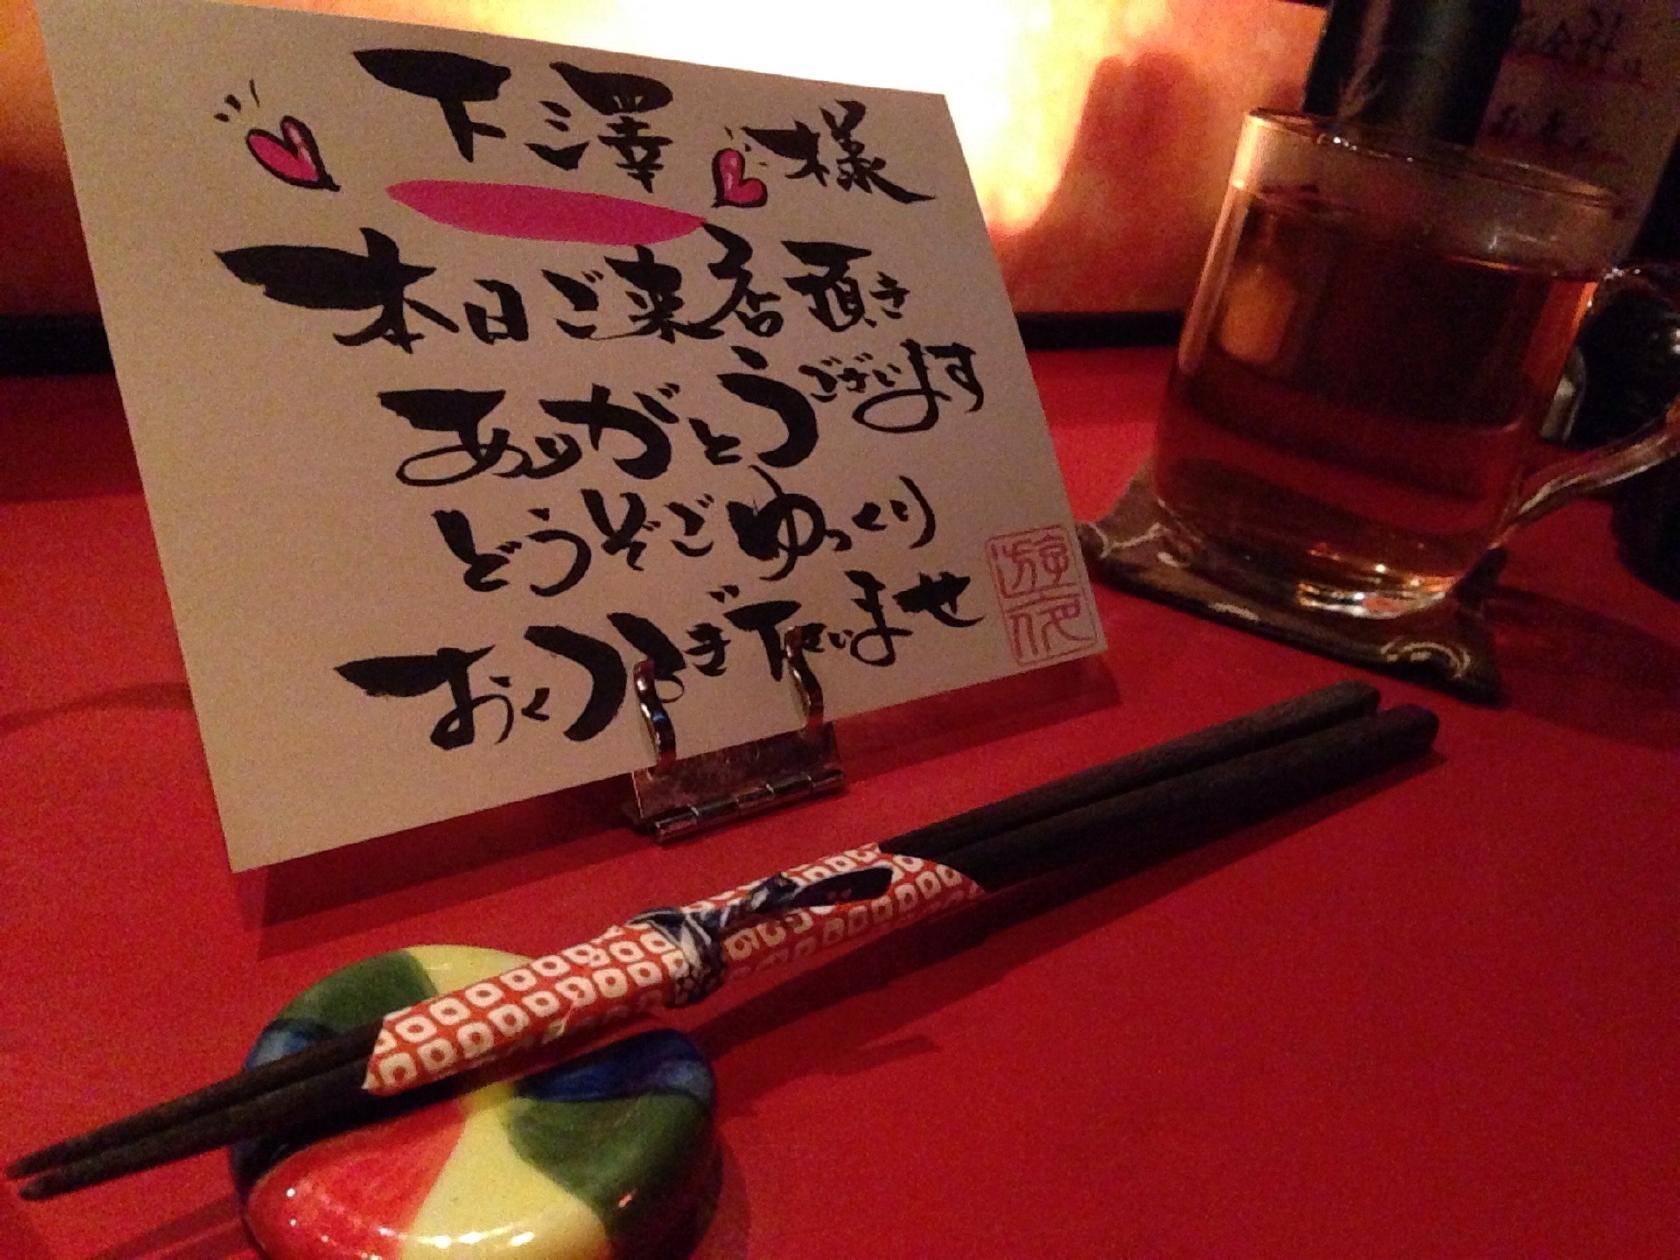 下澤様
本日ご来店頂き
ありがとうございます
どうぞごゆっくり
おくつろぎ下さいませ
遊